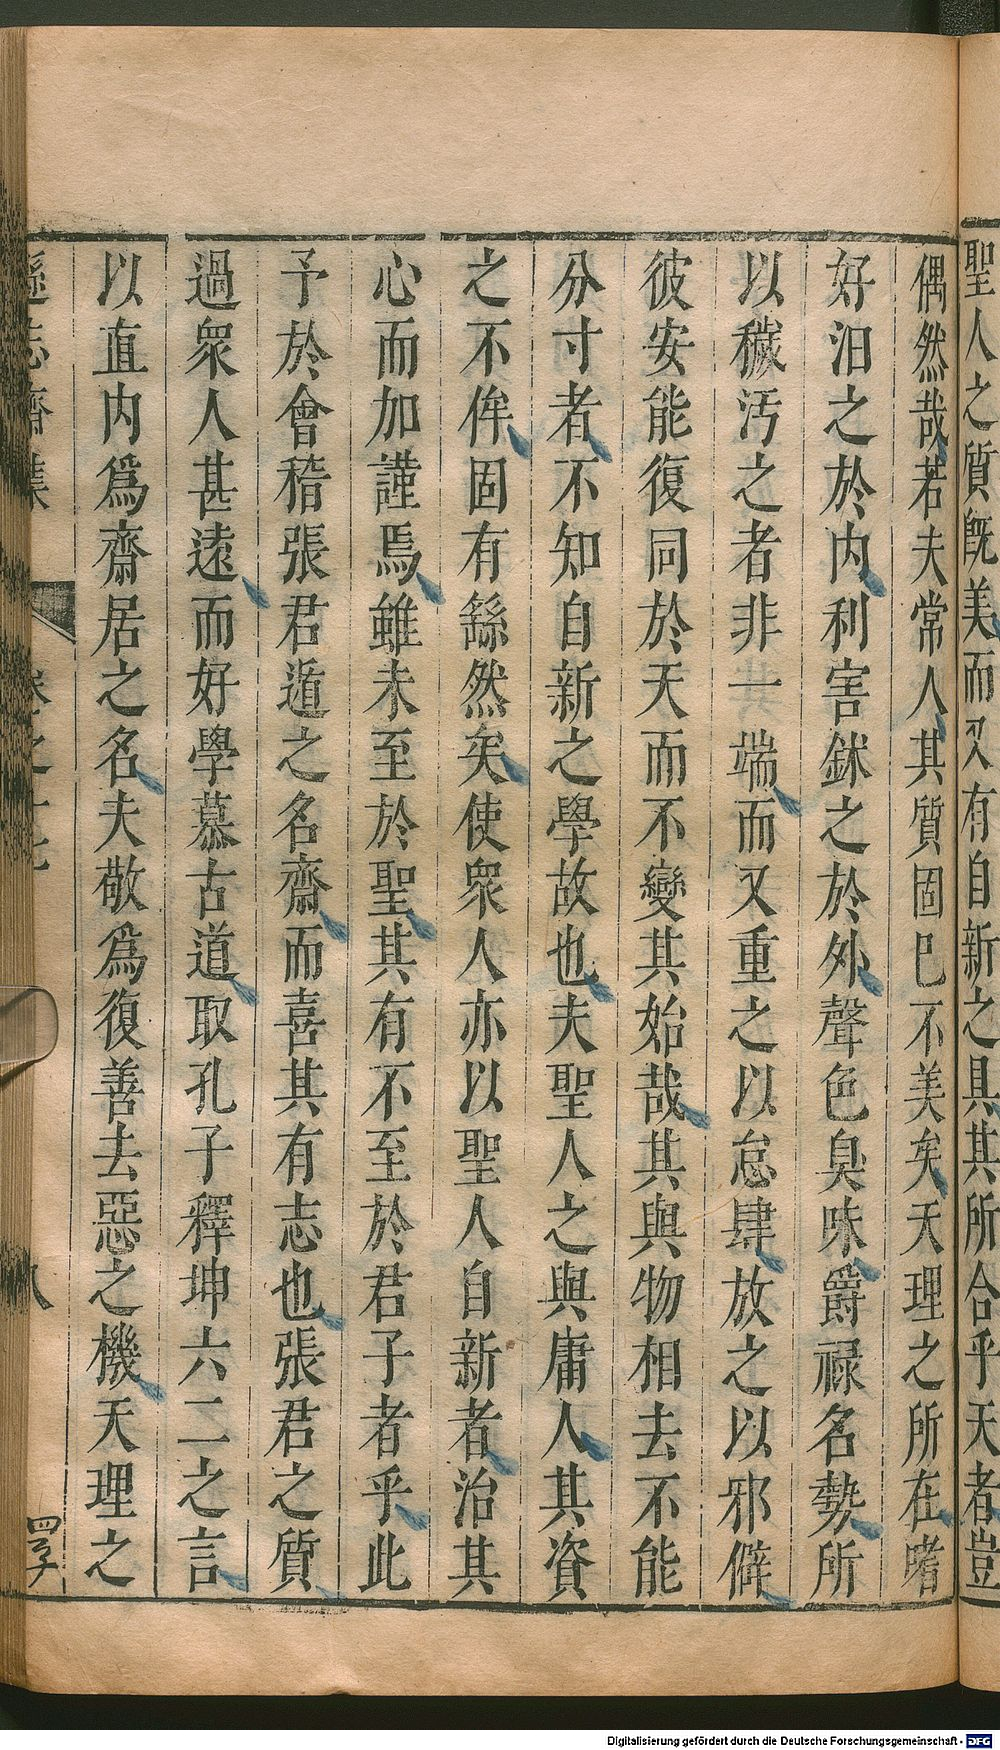 聖人之質旣美而又有自新之具其所合乎天者豈
偶然哉若夫常人其質固已不美矣天理之所在嗜
好汩之於内利害鉥之於外聲色臭味爵祿名勢所
以穢汚之者非一端而又重之以怠肆放之以邪僻
彼安能復同於天而不變其始哉其與物相去不能
分寸者不知自新之學故也夫聖人之與庸人其資
之不侔固有繇然矣使衆人亦以聖人自新者治其
心而加謹焉雖未至於聖其有不至於君子者乎此
予於會稽張君遁之名齋而喜其有志也張君之質
過衆人甚遠而好學慕古道取孔子釋坤六二之言
以直内爲齋居之名夫敬爲復善去惡之機天理之
遜志齋集 卷之十七 八
Digitalisierung gefördert durch die Deutsche Forschungsgemeinschaft - DFG